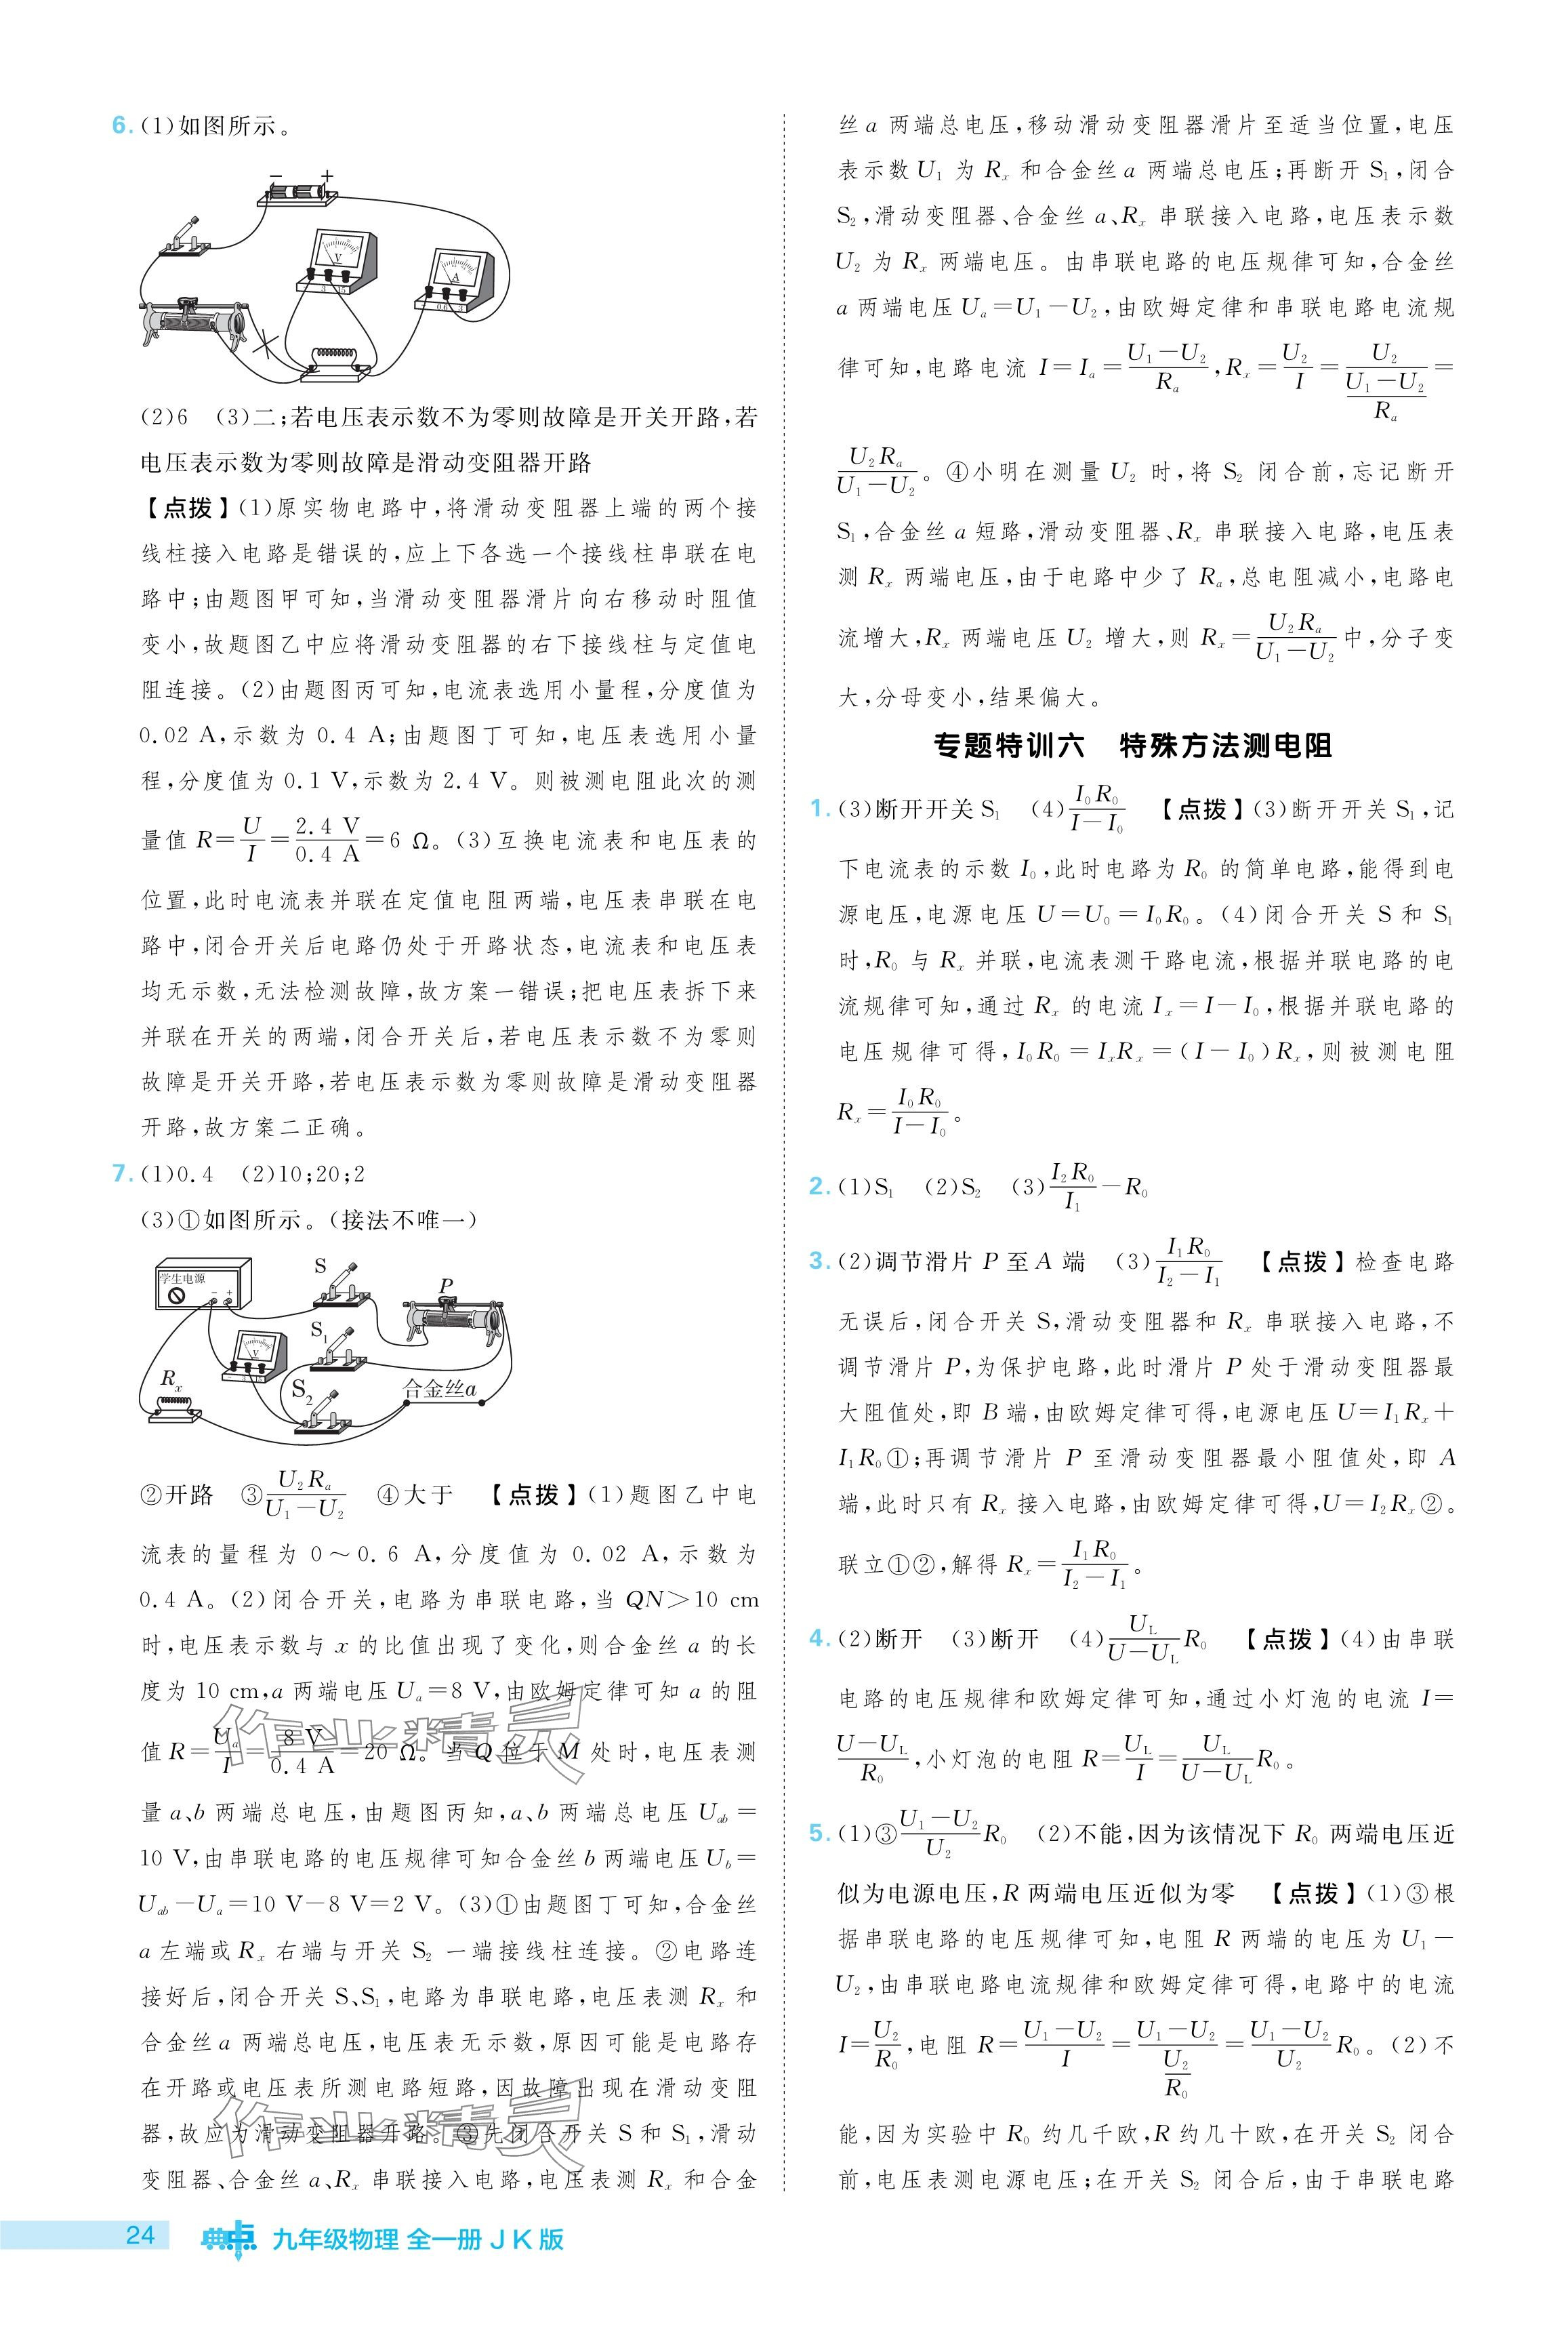 6. (1)如图所示。
− +
V
3 15
A
0.6 3
(2)6 (3)二;若电压表示数不为零则故障是开关开路,若
电压表示数为零则故障是滑动变阻器开路
【点拨】(1)原实物电路中,将滑动变阻器上端的两个接
线柱接入电路是错误的,应上下各选一个接线柱串联在电
路中;由题图甲可知,当滑动变阻器滑片向右移动时阻值
变小,故题图乙中应将滑动变阻器的右下接线柱与定值电
阻连接。(2)由题图丙可知,电流表选用小量程,分度值为
0.02 A,示数为 0.4 A;由题图丁可知,电压表选用小量
程,分度值为 0.1 V,示数为 2.4 V。则被测电阻此次的测
量值 R=U/I=2.4 V/0.4 A=6 Ω。(3)互换电流表和电压表的
位置,此时电流表并联在定值电阻两端,电压表串联在电
路中,闭合开关后电路仍处于开路状态,电流表和电压表
均无示数,无法检测故障,故方案一错误;把电压表拆下来
并联在开关的两端,闭合开关后,若电压表示数不为零则
故障是开关开路,若电压表示数为零则故障是滑动变阻器
开路,故方案二正确。
7. (1)0.4 (2)10;20;2
(3)①如图所示。(接法不唯一)
学生电源
− +
S
P
S₁
V
Rₓ
S₂
合金丝a
②开路 ③U₂Rₐ/(U₁−U₂) ④大于 【点拨】(1)题图乙中电
流表的量程为 0～0.6 A,分度值为 0.02 A,示数为
0.4 A。(2)闭合开关,电路为串联电路,当 QN>10 cm
时,电压表示数与 x 的比值出现了变化,则合金丝 a 的长
度为 10 cm,a 两端电压 Uₐ=8 V,由欧姆定律可知 a 的阻
值 R=Uₐ/I=8 V/0.4 A=20 Ω。当 Q 位于 M 处时,电压表测
量 a、b 两端总电压,由题图丙知,a、b 两端总电压 U_ab=
10 V,由串联电路的电压规律可知合金丝 b 两端电压 U_b=
U_ab−Uₐ=10 V−8 V=2 V。(3)①由题图丁可知,合金丝
a 左端或 Rₓ 右端与开关 S₂ 一端接线柱连接。②电路连
接好后,闭合开关 S、S₁,电路为串联电路,电压表测 Rₓ 和
合金丝 a 两端总电压,电压表无示数,原因可能是电路存
在开路或电压表所测电路短路,因故障出现在滑动变阻
器,故应为滑动变阻器开路。③先闭合开关 S 和 S₁,滑动
变阻器、合金丝 a、Rₓ 串联接入电路,电压表测 Rₓ 和合金
丝 a 两端总电压,移动滑动变阻器滑片至适当位置,电压
表示数 U₁ 为 Rₓ 和合金丝 a 两端总电压;再断开 S₁,闭合
S₂,滑动变阻器、合金丝 a、Rₓ 串联接入电路,电压表示数
U₂ 为 Rₓ 两端电压。由串联电路的电压规律可知,合金丝
a 两端电压 Uₐ=U₁−U₂,由欧姆定律和串联电路电流规
律可知,电路电流 I=Iₐ=(U₁−U₂)/Rₐ,Rₓ=U₂/I=U₂/((U₁−U₂)/Rₐ)=
U₂Rₐ/(U₁−U₂)。④小明在测量 U₂ 时,将 S₂ 闭合前,忘记断开
S₁,合金丝 a 短路,滑动变阻器、Rₓ 串联接入电路,电压表
测 Rₓ 两端电压,由于电路中少了 Rₐ,总电阻减小,电路电
流增大,Rₓ 两端电压 U₂ 增大,则 Rₓ=U₂Rₐ/(U₁−U₂)中,分子变
大,分母变小,结果偏大。
专题特训六 特殊方法测电阻
1. (3)断开开关 S₁ (4)I₀R₀/(I−I₀) 【点拨】(3)断开开关 S₁,记
下电流表的示数 I₀,此时电路为 R₀ 的简单电路,能得到电
源电压,电源电压 U=U₀=I₀R₀。(4)闭合开关 S 和 S₁
时,R₀ 与 Rₓ 并联,电流表测干路电流,根据并联电路的电
流规律可知,通过 Rₓ 的电流 Iₓ=I−I₀,根据并联电路的
电压规律可得,I₀R₀=IₓRₓ=(I−I₀)Rₓ,则被测电阻
Rₓ=I₀R₀/(I−I₀)。
2. (1)S₁ (2)S₂ (3)I₂R₀/I₁−R₀
3. (2)调节滑片 P 至 A 端 (3)I₁R₀/(I₂−I₁) 【点拨】检查电路
无误后,闭合开关 S,滑动变阻器和 Rₓ 串联接入电路,不
调节滑片 P,为保护电路,此时滑片 P 处于滑动变阻器最
大阻值处,即 B 端,由欧姆定律可得,电源电压 U=I₁Rₓ+
I₁R₀①;再调节滑片 P 至滑动变阻器最小阻值处,即 A
端,此时只有 Rₓ 接入电路,由欧姆定律可得,U=I₂Rₓ②。
联立①②,解得 Rₓ=I₁R₀/(I₂−I₁)。
4. (2)断开 (3)断开 (4)U_L/(U−U_L)R₀ 【点拨】(4)由串联
电路的电压规律和欧姆定律可知,通过小灯泡的电流 I=
(U−U_L)/R₀,小灯泡的电阻 R=U_L/I=U_L/(U−U_L)R₀。
5. (1)③(U₁−U₂)/U₂R₀ (2)不能,因为该情况下 R₀ 两端电压近
似为电源电压,R 两端电压近似为零 【点拨】(1)③根
据串联电路的电压规律可知,电阻 R 两端的电压为 U₁−
U₂,由串联电路电流规律和欧姆定律可得,电路中的电流
I=U₂/R₀,电阻 R=(U₁−U₂)/I=(U₁−U₂)/(U₂/R₀)=(U₁−U₂)/U₂R₀。(2)不
能,因为实验中 R₀ 约几千欧,R 约几十欧,在开关 S₂ 闭合
前,电压表测电源电压;在开关 S₂ 闭合后,由于串联电路
作业精灵
作业精灵
24 典中点 九年级物理 全一册 JK版